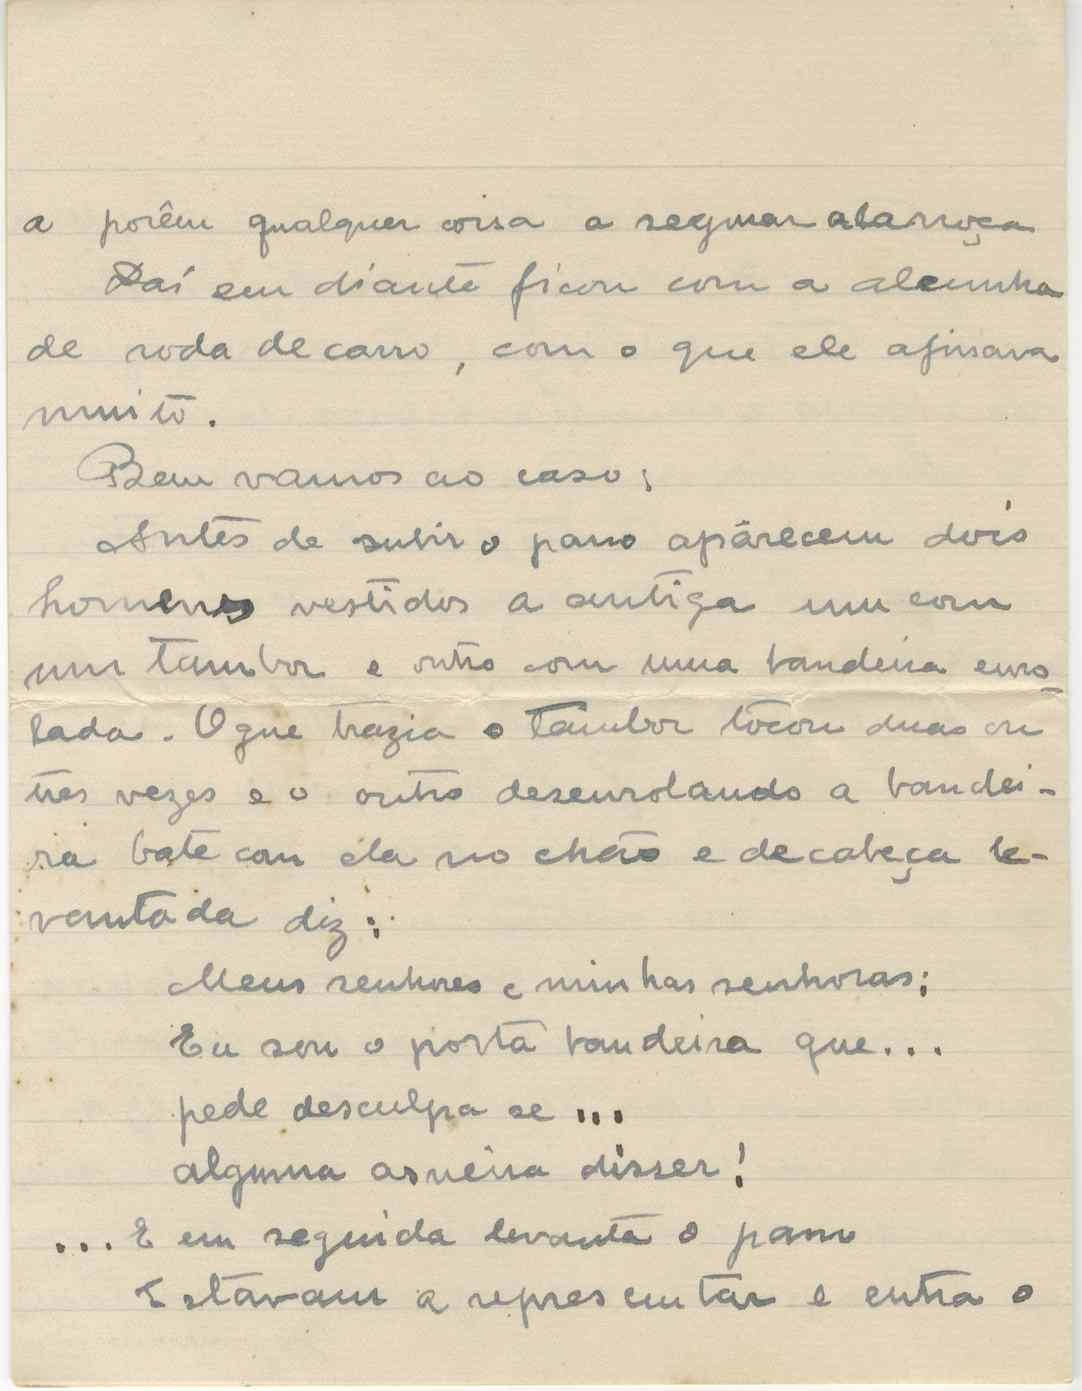 a porêm qualquer coisa a segurar a carroça
Daí em diante ficou com a alcunha
de roda de carro, com o que ele afinava
muito.
Bem vamos ao caso;
Antes de subir o pano aparecem dois
homens vestidos a antiga um com
um tambor e outro com uma bandeira enro-
lada. O que trazia o tambor tocou duas ou
três vezes e o outro desenrolando a bandei-
ra bate com ela no chão e de cabeça le-
vantada diz:
Meus senhores e minhas senhoras;
Eu sou o porta bandeira que...
pede desculpa se ...
alguma asneira disser!
... E em seguida levanta o pano
Estavam a representar e entra o